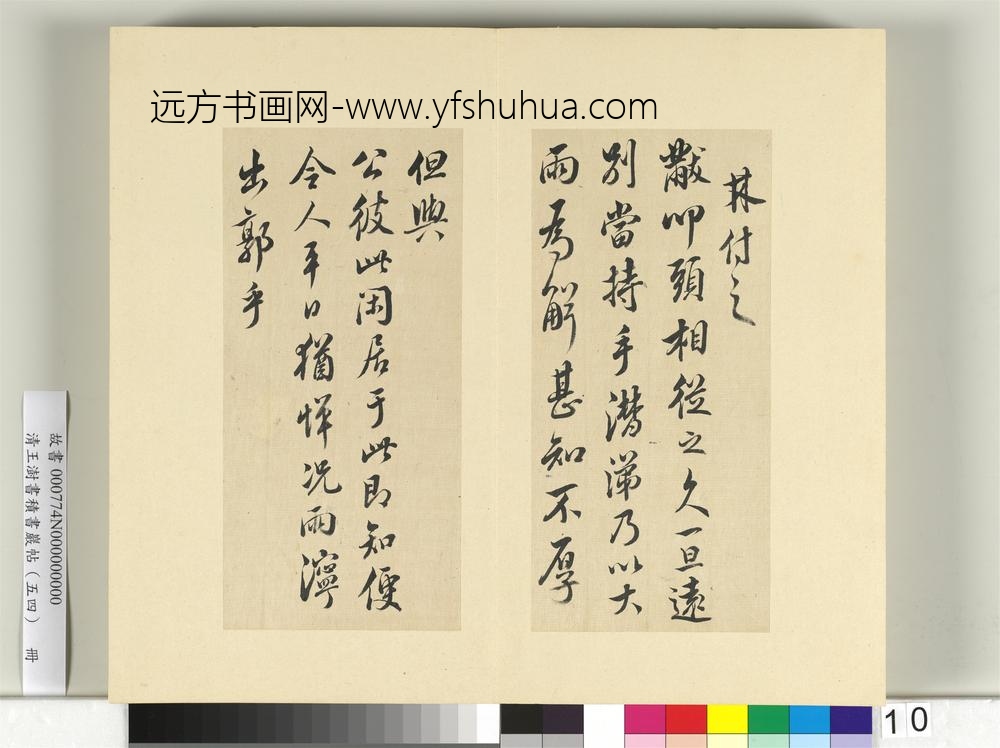 远方书画网-www.yfshuhua.com
林付之
黻叩頭相從之久一旦遠
別當持手潸涕乃以大
雨為解甚知不厚
但與
公彼此閑居于此即知便
令人平日猶惘况雨濘
出郭乎
故書 000774N000000000
清王澍書積書巖帖（五四） 冊
10